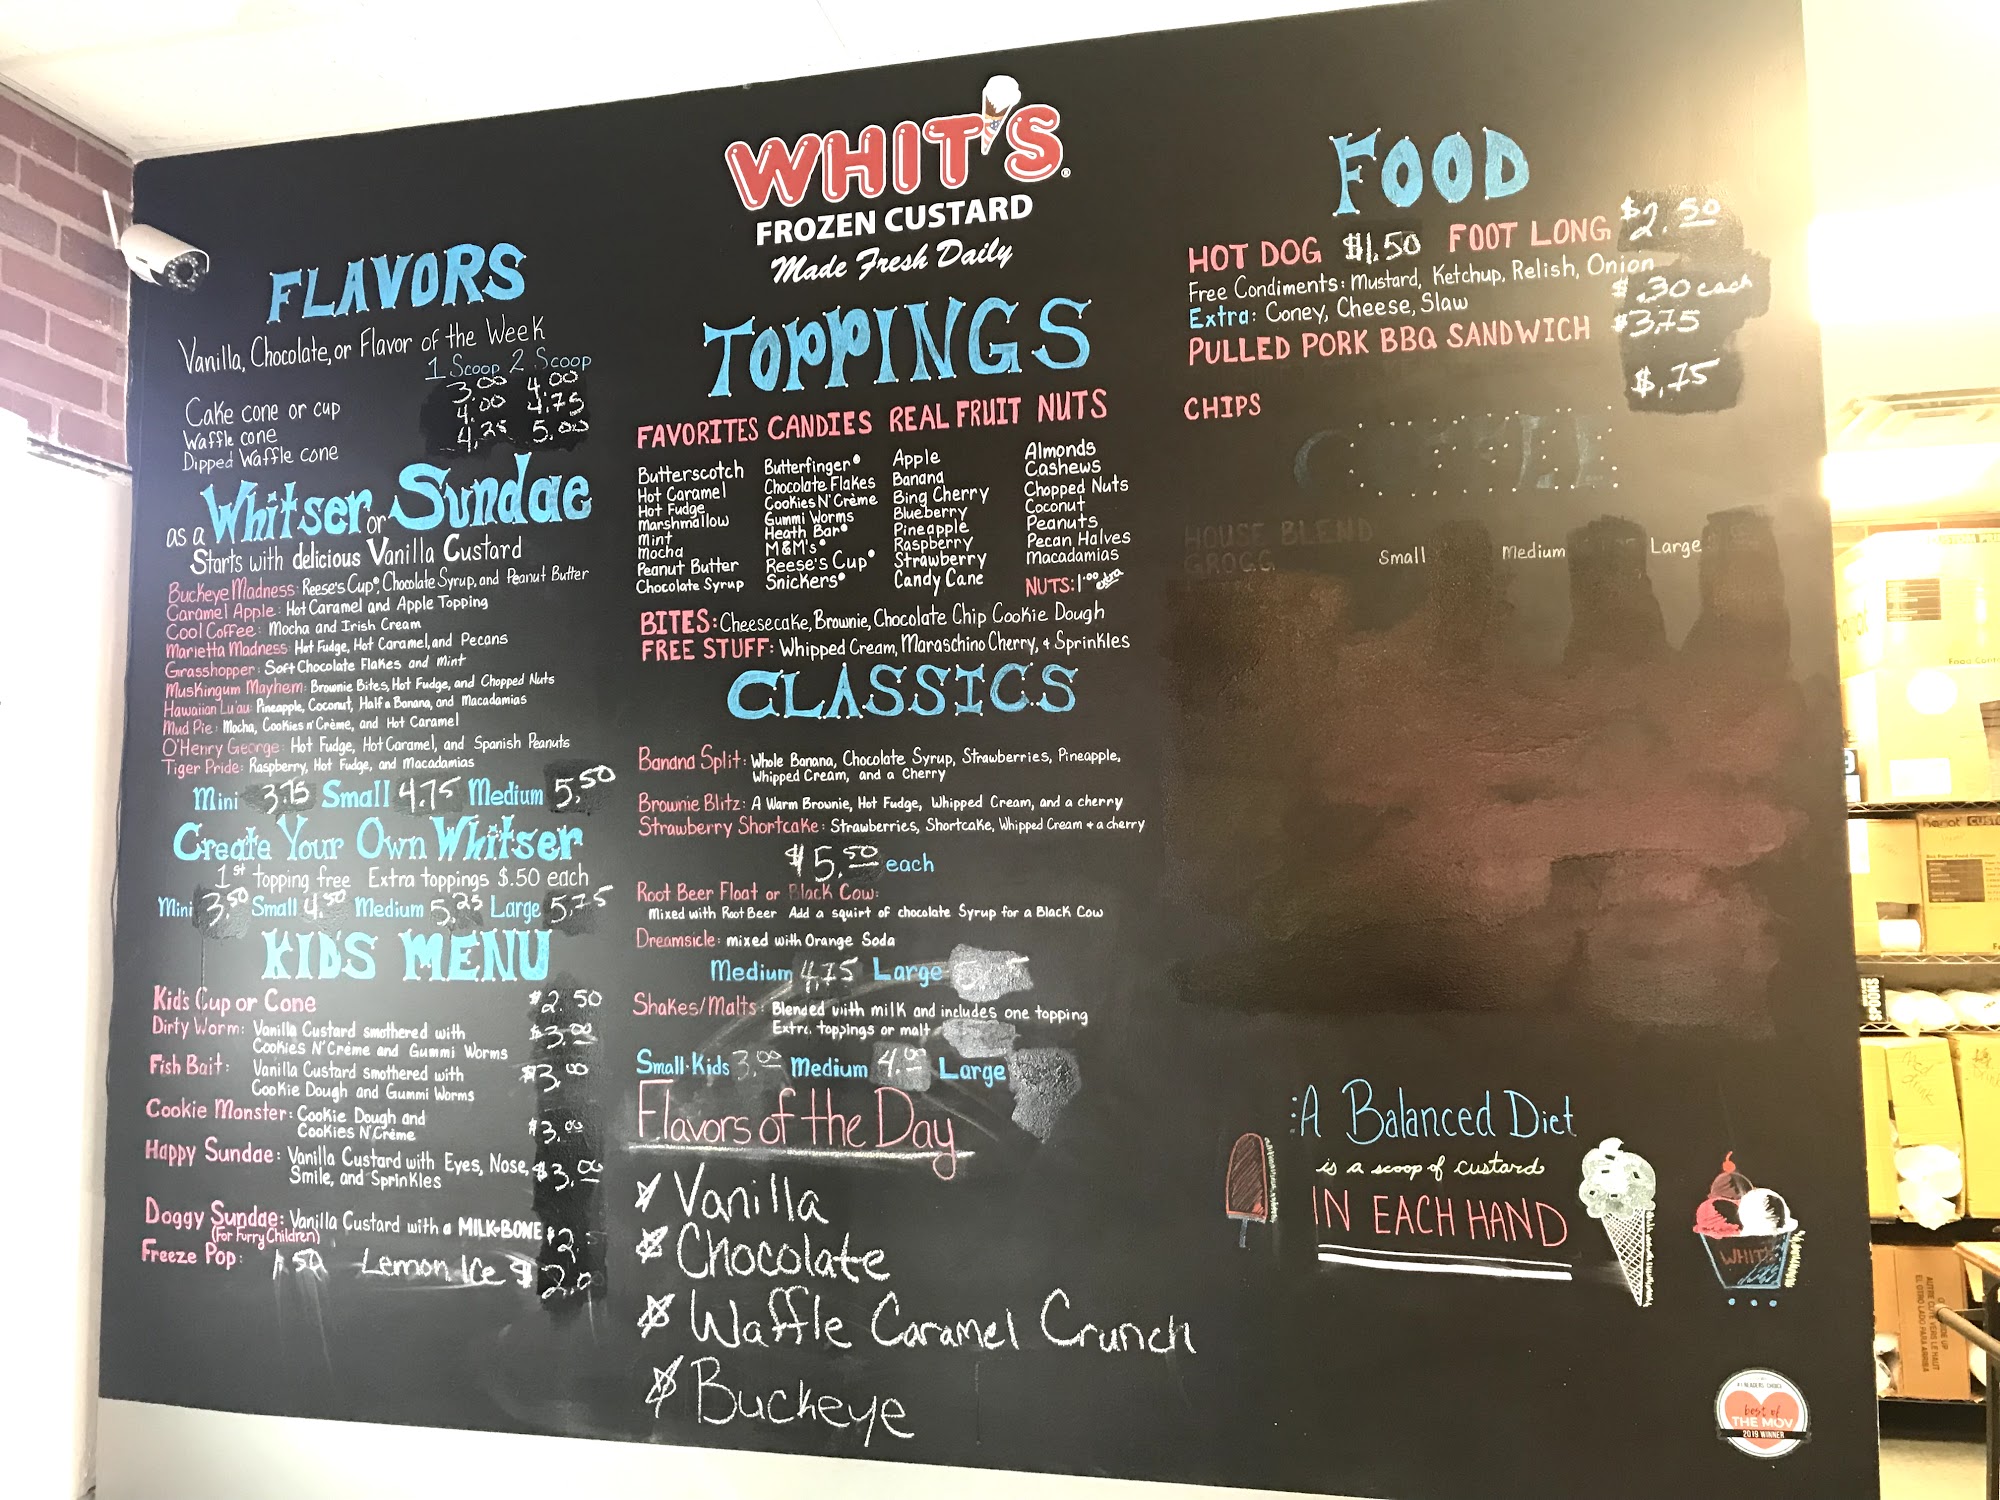 WHIT'S
FROZEN CUSTARD
Made Fresh Daily
FLAVORS
Vanilla, Chocolate, or Flavor of the Week
1 Scoop 2 Scoop
Cake cone or cup 3.00 4.00
Waffle cone 4.00 4.75
Dipped Waffle cone 4.25 5.00
as a Whitser or Sundae
Starts with delicious Vanilla Custard
Buckeye Madness: Reese's Cup®, Chocolate Syrup, and Peanut Butter
Caramel Apple: Hot Caramel and Apple Topping
Cool Coffee: Mocha and Irish Cream
Marietta Madness: Hot Fudge, Hot Caramel, and Pecans
Grasshopper: Soft Chocolate Flakes and Mint
Muskingum Mayhem: Brownie Bites, Hot Fudge, and Chopped Nuts
Hawaiian Lu'au: Pineapple, Coconut, Half a Banana, and Macadamias
Mud Pie: Mocha, Cookies n' Crème, and Hot Caramel
O'Henry George: Hot Fudge, Hot Caramel, and Spanish Peanuts
Tiger Pride: Raspberry, Hot Fudge, and Macadamias
Mini 3.75 Small 4.75 Medium 5.50
Create Your Own Whitser
1st topping free Extra toppings $.50 each
Mini 3.50 Small 4.50 Medium 5.25 Large 5.75
KID'S MENU
Kid's Cup or Cone $2.50
Dirty Worm: Vanilla Custard smothered with $3.00
Cookies N' Crème and Gummi Worms
Fish Bait: Vanilla Custard smothered with $3.00
Cookie Dough and Gummi Worms
Cookie Monster: Cookie Dough and
Cookies N' Crème $3.00
Happy Sundae: Vanilla Custard with Eyes, Nose, $3.00
Smile, and Sprinkles
Doggy Sundae: Vanilla Custard with a MILK-BONE $2.
(For Furry Children)
Freeze Pop: 1.50 Lemon Ice $2.0
TOPPINGS
FAVORITES CANDIES REAL FRUIT NUTS
Butterscotch Butterfinger® Apple Almonds
Hot Caramel Chocolate Flakes Banana Cashews
Hot Fudge Cookies N' Crème Bing Cherry Chopped Nuts
Marshmallow Gummi Worms Blueberry Coconut
Mint Heath Bar® Pineapple Peanuts
Mocha M&M's® Raspberry Pecan Halves
Peanut Butter Reese's Cup® Strawberry Macadamias
Chocolate Syrup Snickers® Candy Cane NUTS: 1.00 extra
BITES: Cheesecake, Brownie, Chocolate Chip Cookie Dough
FREE STUFF: Whipped Cream, Maraschino Cherry, + Sprinkles
CLASSICS
Banana Split: Whole Banana, Chocolate Syrup, Strawberries, Pineapple,
Whipped Cream, and a Cherry
Brownie Blitz: A Warm Brownie, Hot Fudge, Whipped Cream, and a cherry
Strawberry Shortcake: Strawberries, Shortcake, Whipped Cream + a cherry
$5.50 each
Root Beer Float or Black Cow:
Mixed with Root Beer Add a squirt of chocolate Syrup for a Black Cow
Dreamsicle: mixed with Orange Soda
Medium 4.75 Large
Shakes/Malts: Blended with milk and includes one topping
Extra toppings or malt
Small-Kids 3.00 Medium 4.00 Large
Flavors of the Day
Vanilla
Chocolate
Waffle Caramel Crunch
Buckeye
FOOD
HOT DOG $1.50 FOOT LONG $2.50
Free Condiments: Mustard, Ketchup, Relish, Onion
Extra: Coney, Cheese, Slaw $.30 each
PULLED PORK BBQ SANDWICH $3.75
CHIPS $.75
HOUSE BLEND
GROGG
Small Medium Large
A Balanced Diet
is a scoop of custard
IN EACH HAND
WHIT'S
#1 READERS' CHOICE
best of
THE MOV
2019 WINNER
SPOONS